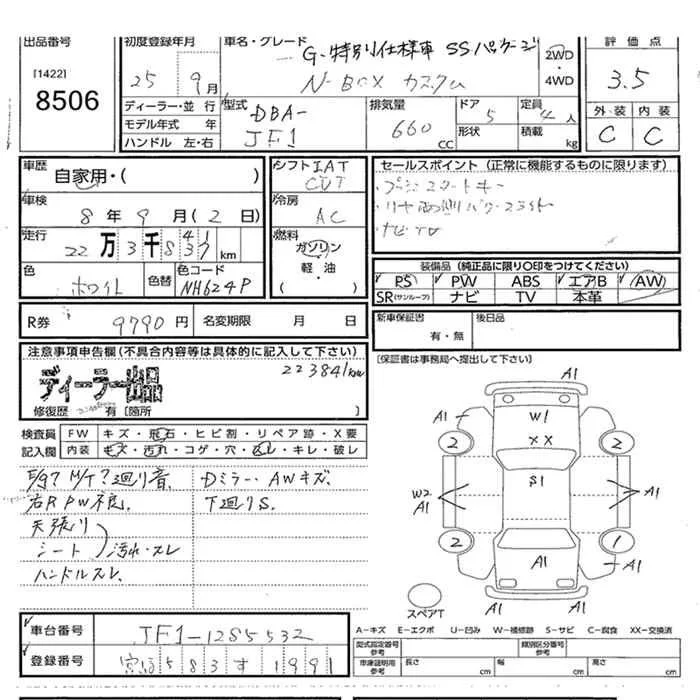 出品番号
[1422]
8506
初度登録年月
25年 9月
車名・グレード
G・特別仕様車 SSパッケージ
N-BOX カスタム
2WD
・
4WD
評価点
3.5
外装 内装
C C
ディーラー・並行
モデル年式 年
ハンドル 左・右
型式
DBA-
JF1
排気量
660
cc
ドア 5
形状
定員 4人
積載 kg
車歴
自家用・( )
車検
8年 9月(2日)
走行
22万3千8 km
色
ホワイト
色替
色コード
NH624P
シフト IAT
CVT
冷房
AC
燃料
ガソリン
軽・油
( )
セールスポイント (正常に機能するものに限ります)
・プッシュスタートキー
・リヤ両側パワースライド
・ナビTV
装備品 (純正品に限り○印をつけてください)
PS PW ABS エアB AW
SR(サンルーフ) ナビ TV 本革
R券 9790円 名変期限 月 日
新車保証書
有・無
後日品
[保証書は事務局へ提出して下さい]
注意事項申告欄 (不具合内容等は具体的に記入して下さい)
ディーラー出品
223841km
修復歴 有 [箇所 ]
検査員 FW キズ・飛石・ヒビ割・リペア跡・X要
記入欄 内装 キズ・汚れ・コゲ・穴・スレ・キレ・破レ
E/g? M/T? 廻り音 Dミラー、AWキズ
右RPW不良、 下廻りS、
天張り
シート 汚れ・スレ
ハンドルスレ、
A1
A1
W1
XX
2
2
A1
S1
W2
A1
A1
2
1
A1
A1
A1
スペアT
車台番号 JF1-1285532
登録番号 583す1991
A-キズ E-エクボ U-凹み W-補修跡 S-サビ C-腐食 XX-交換済
型式指定番号
参考
類別区分番号
参考
車庫証明用
参考
長さ cm
幅 cm
高さ cm